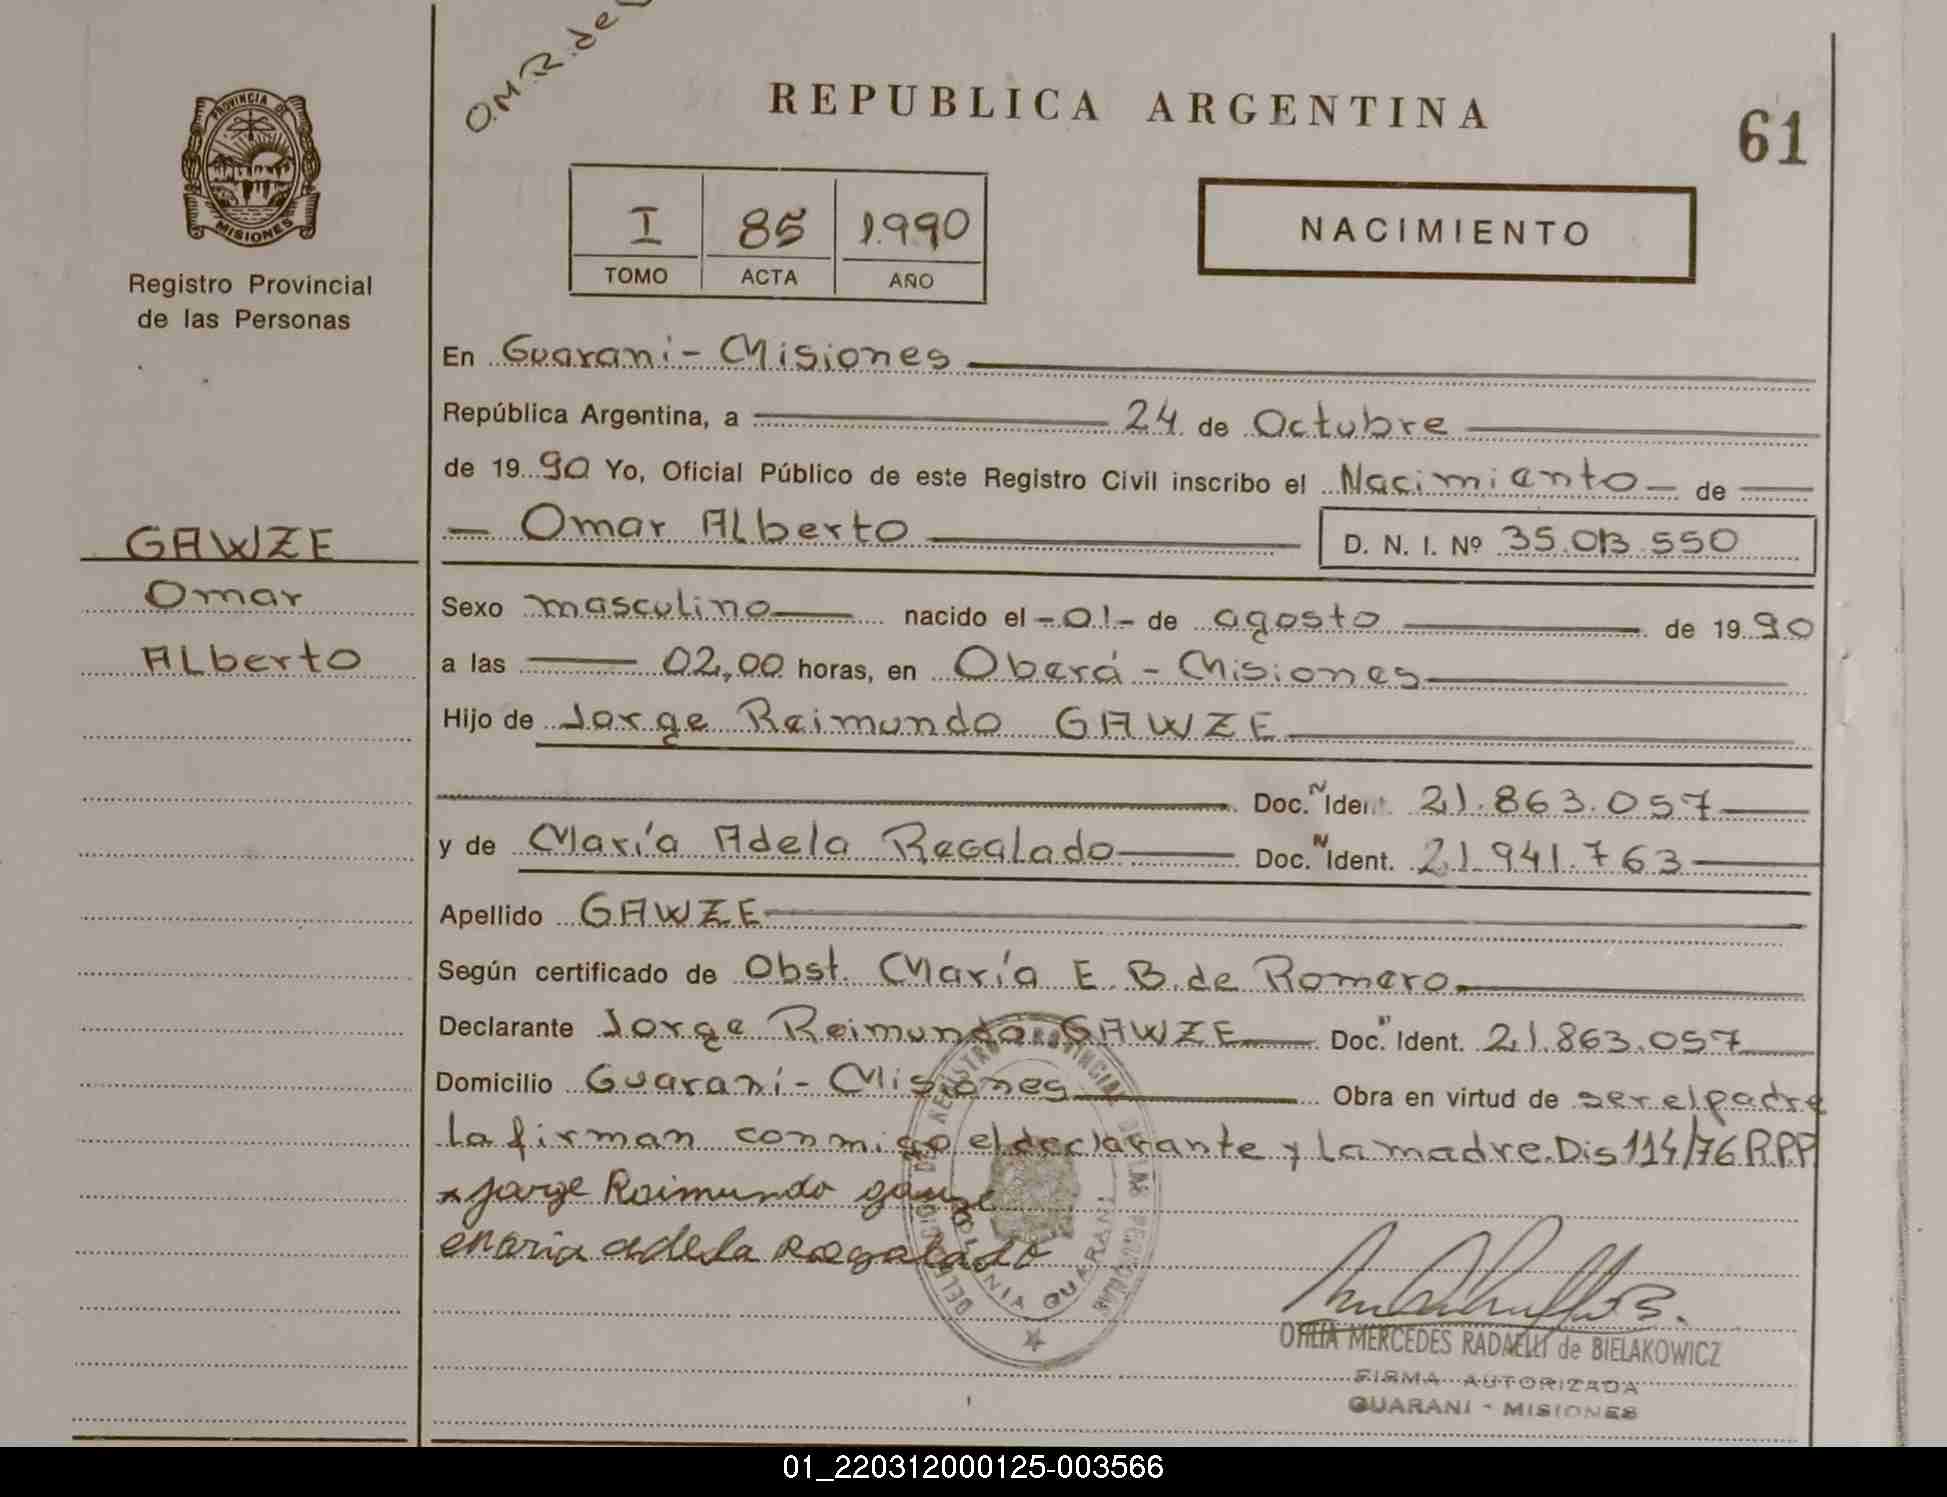 O.M.R. de
REPUBLICA ARGENTINA
61
PROVINCIA DE
MISIONES
Registro Provincial
de las Personas
I 85 1.990
TOMO ACTA AÑO
NACIMIENTO
En Guaraní - Misiones
República Argentina, a 24 de Octubre
de 19 90 Yo, Oficial Público de este Registro Civil inscribo el Nacimiento - de
- Omar Alberto D. N. I. Nº 35.013.550
GAWZE
Omar
Alberto
Sexo masculino nacido el - 01 - de agosto de 19 90
a las 02,00 horas, en Oberá - Misiones
Hijo de Jorge Reimundo GAWZE
Doc. N Ident. 21.863.057
y de María Adela Regalado Doc. N Ident. 21.941.763
Apellido GAWZE
Según certificado de Obst. María E. B. de Romero
Declarante Jorge Reimundo GAWZE Doc. Ident. 21.863.057
Domicilio Guaraní - Misiones Obra en virtud de ser el padre
La firman conmigo el declarante y La madre. Dis 114/76 R.P.P.
x Jorge Raimundo gauze
Maria Adela Regalado
DELEGACION DEL REGISTRO PROVINCIAL DE LAS PERSONAS
COLONIA GUARANI
OFILIA MERCEDES RADAELLI de BIELAKOWICZ
FIRMA AUTORIZADA
GUARANI - MISIONES
01_220312000125-003566